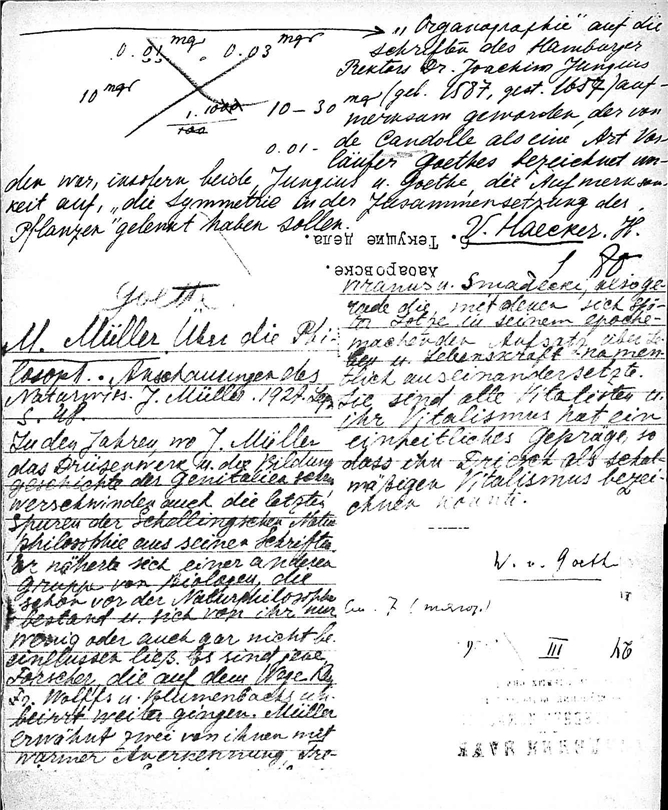 0.01 mgr 0.03 mgr
10 mgr 10–30 mgr
1.1000
100
0.01 -
„Organographie" auf die
schriften des Hamburger
Rektors Dr. Joachim Jungius
(geb. 1587, gest. 1657) auf-
merksam geworden, der von
de Candolle als eine Art Vor-
läufer Goethes bezeichnet wor-
den war, insofern beide, Jungius u. Goethe, die Aufmerksam-
keit auf „die Symmetrie in der Zusammensetzung der
Pflanzen" gelenkt haben sollen.
V. Haecker. H.
Текущие дела.
S. 80
Goethe
M. Müller Über die Phi-
losoph. Anschauungen des
Naturwiss. J. Müller. 1927.
S. 48.
In den Jahren, wo J. Müller
das Drüsenwerk u. die Bildungs
geschichte der Genitalien
verschwinden auch die letzten
Spuren der Schellingschen Natur
philosophie aus seinen Schriften.
Er näherte sich einer anderen
Gruppe von Biologen, die
schon vor der Naturphilosophie
bestand u. sich von ihr nur
wenig oder auch gar nicht be-
einflussen ließ. Es sind jene
Forscher, die auf dem Wege
Fr. Wolffs u. Blumenbachs un-
beirrt weiter gingen. Müller
erwähnt zwei von ihnen mit
warmer Anerkennung, Tre-
viranus u. alsoge-
rade die, mit denen sich
Lotze in seinem epoche-
machenden Aufsatz über
Leben u. Lebenskraft namen-
tlich auseinandersetzte.
Sie sind alle Vitalisten u.
ihr Vitalismus hat ein
einheitliches Gepräge, so
dass ihn Driesch als schul-
mäßigen Vitalismus bezei-
chnen konnte.
W. v. Goethe
III
24